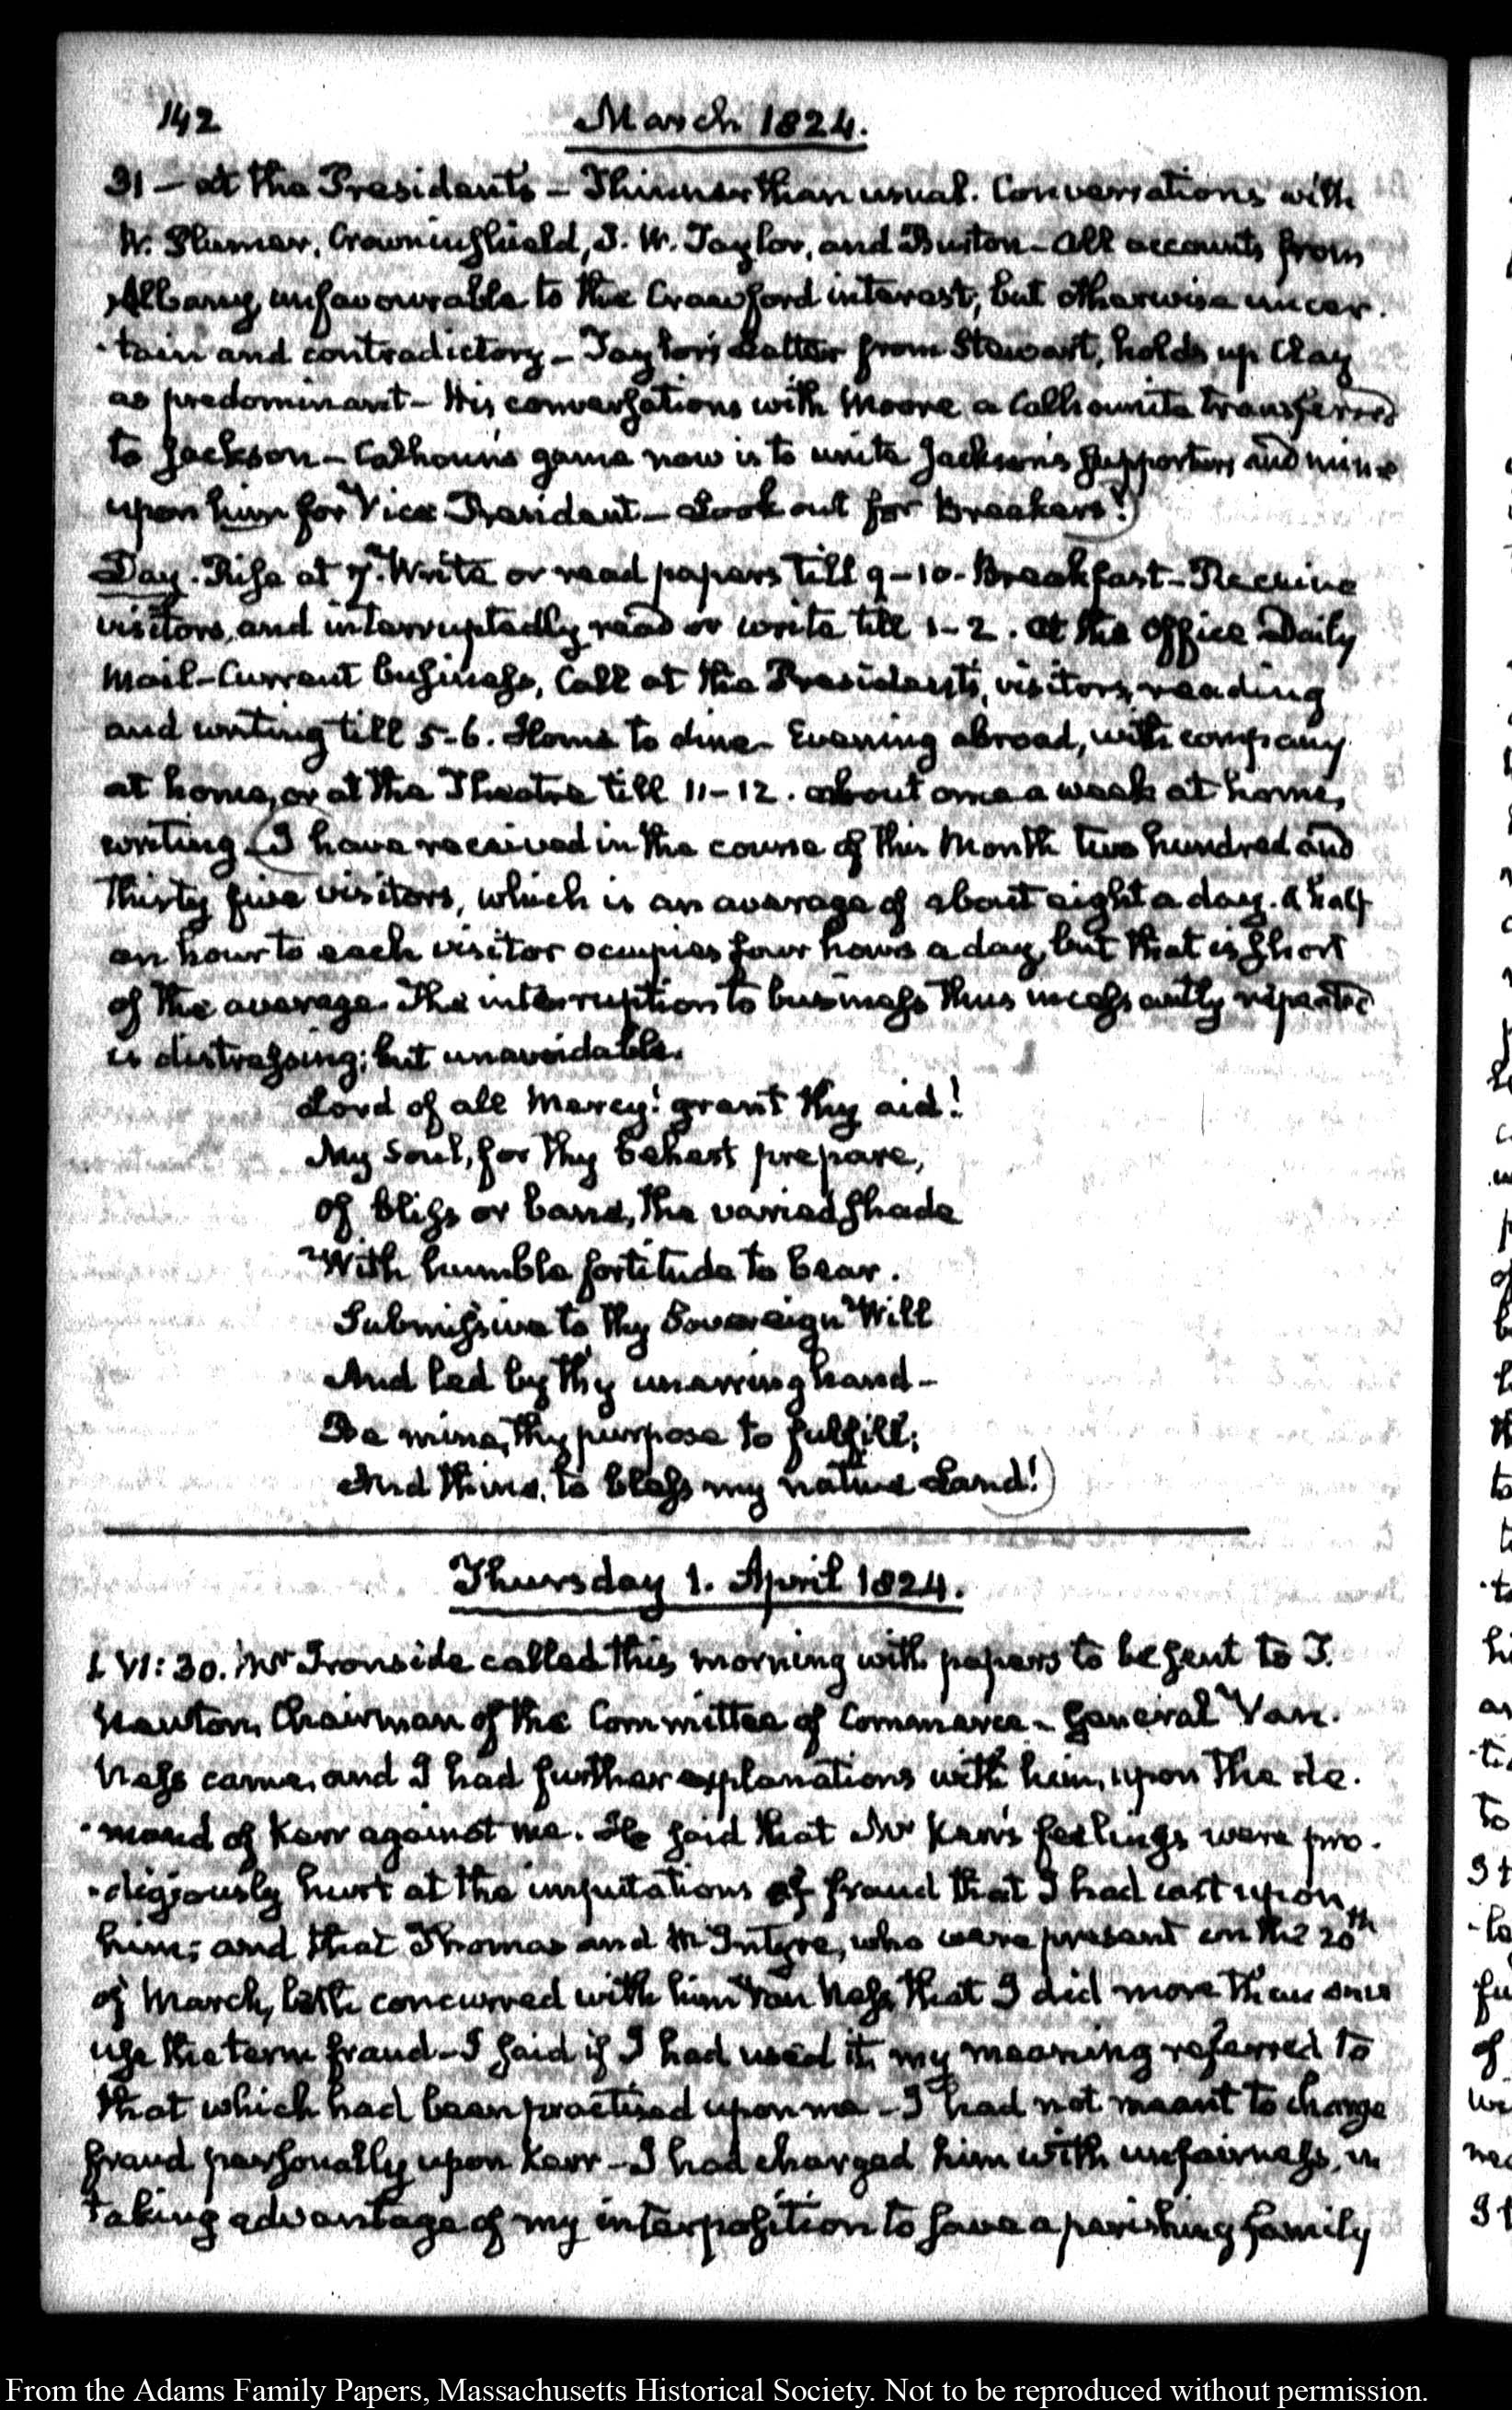 142
March 1824.
31 — at the Presidents — Thinner than usual. Conversations with
W. Plumer, Crowninshield, J. W. Taylor, and Burton — All accounts from
Albany, unfavourable to the Crawford interest; but otherwise uncer-
-tain and contradictory — Taylor's Letter from Stewart, holds up Clay
as predominant — His conversations with Moore a Calhounite transferred
to Jackson — Calhoun's game now is to unite Jackson's supporters and mine
upon him for Vice President — Look out for Breakers!
Day. Rise at 7. Write or read papers till 9–10. Breakfast — Receive
visitors, and interruptedly read or write till 1–2. At the Office Daily
Mail — Current business, Call at the Presidents, visitors, reading
and writing till 5–6. Home to dine — Evening abroad, with company
at home, or at the Theatre till 11–12. about once a week at home,
writing. I have received in the course of this Month two hundred and
thirty five visitors, which is an average of about eight a day. A half
an hour to each visitor occupies four hours a day, but that is short
of the average. The interruption to business thus incessantly repeated
is distressing; but unavoidable.
Lord of all Mercy! grant thy aid!
My Soul, for thy behest prepare,
Of bliss or bane, the varied shade
With humble fortitude to bear.
Submissive to thy Sovereign Will
And led by thy unerring hand —
Be mine, thy purpose to fulfill;
And thine, to bless my native Land!
Thursday 1. April 1824.
I VI: 30. Mr Ironside called this morning with papers to be sent to T.
Newton, Chairman of the Committee of Commerce — General Van-
Ness came, and I had further explanations with him, upon the de-
-mand of Kerr against me. He said that Mr Kerr's feelings were pro-
-digiously hurt at the imputations of fraud that I had cast upon
him; and that Thomas and McIntyre, who were present on the 20th
of March, both concurred with him Van Ness, that I did more than once
use the term fraud — I said if I had used it, my meaning referred to
that which had been practised upon me — I had not meant to charge
fraud personally upon Kerr — I had charged him with unfairness, in
taking advantage of my interposition to save a perishing family
From the Adams Family Papers, Massachusetts Historical Society. Not to be reproduced without permission.